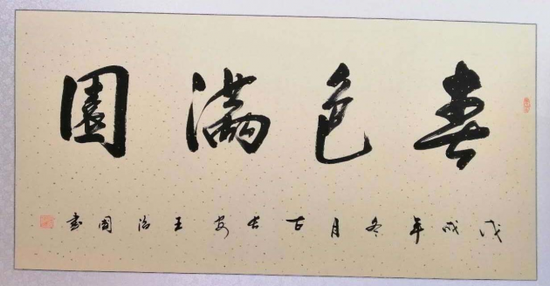 春色滿園
戊戌年冬月古長安王治國書